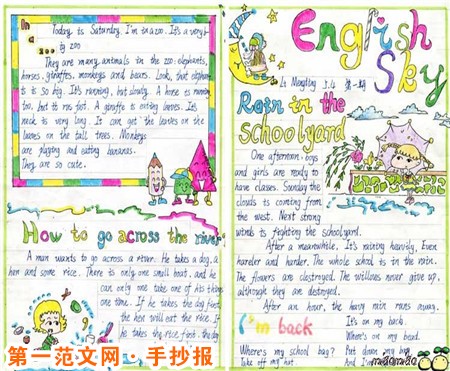 In a zoo
Today is Saturday. I'm in a zoo. It's a very
big zoo
They are many animals in the zoo: elephants,
horses, giraffes, monkeys and bears. Look, that elephant
is so big. It's running, but slowly. A horse is running
too, but it's not fat. A giraffe is eating leaves. It's
neck is very long. It can get the leaves on the
leaves on the tall trees. Monkeys
are playing and eating bananas.
They are so cute.
How to go across the river
A man wants to go across a river. He takes a dog, a
hen and some rice. There is only one small boat, and he
can only one take one of his things
one time. If he takes the dog first,
the hen will eat the rice. If
he takes the rice first, the dog
English
Sky
Li Mengting 5.4 第一期
Rain in the
schoolyard
One afternoon, boys
and girls are ready to
have classes. Sunday the
clouds is coming from
the west. Next strong
winds is fighting the schoolyard.
After a meanwhile, It's raining heavily, Even
harder and harder. The whole school is in the rain.
The flowers are clestroyed. The willows never give up,
although they are destroyed.
After an hour, the heavy rain runs away.
I'm back
It's on my back.
Where's on my bead.
Where's my school bag?
Put down my bag
Take off my hat.
And I'm
miaomiao
第一范文网·手抄报